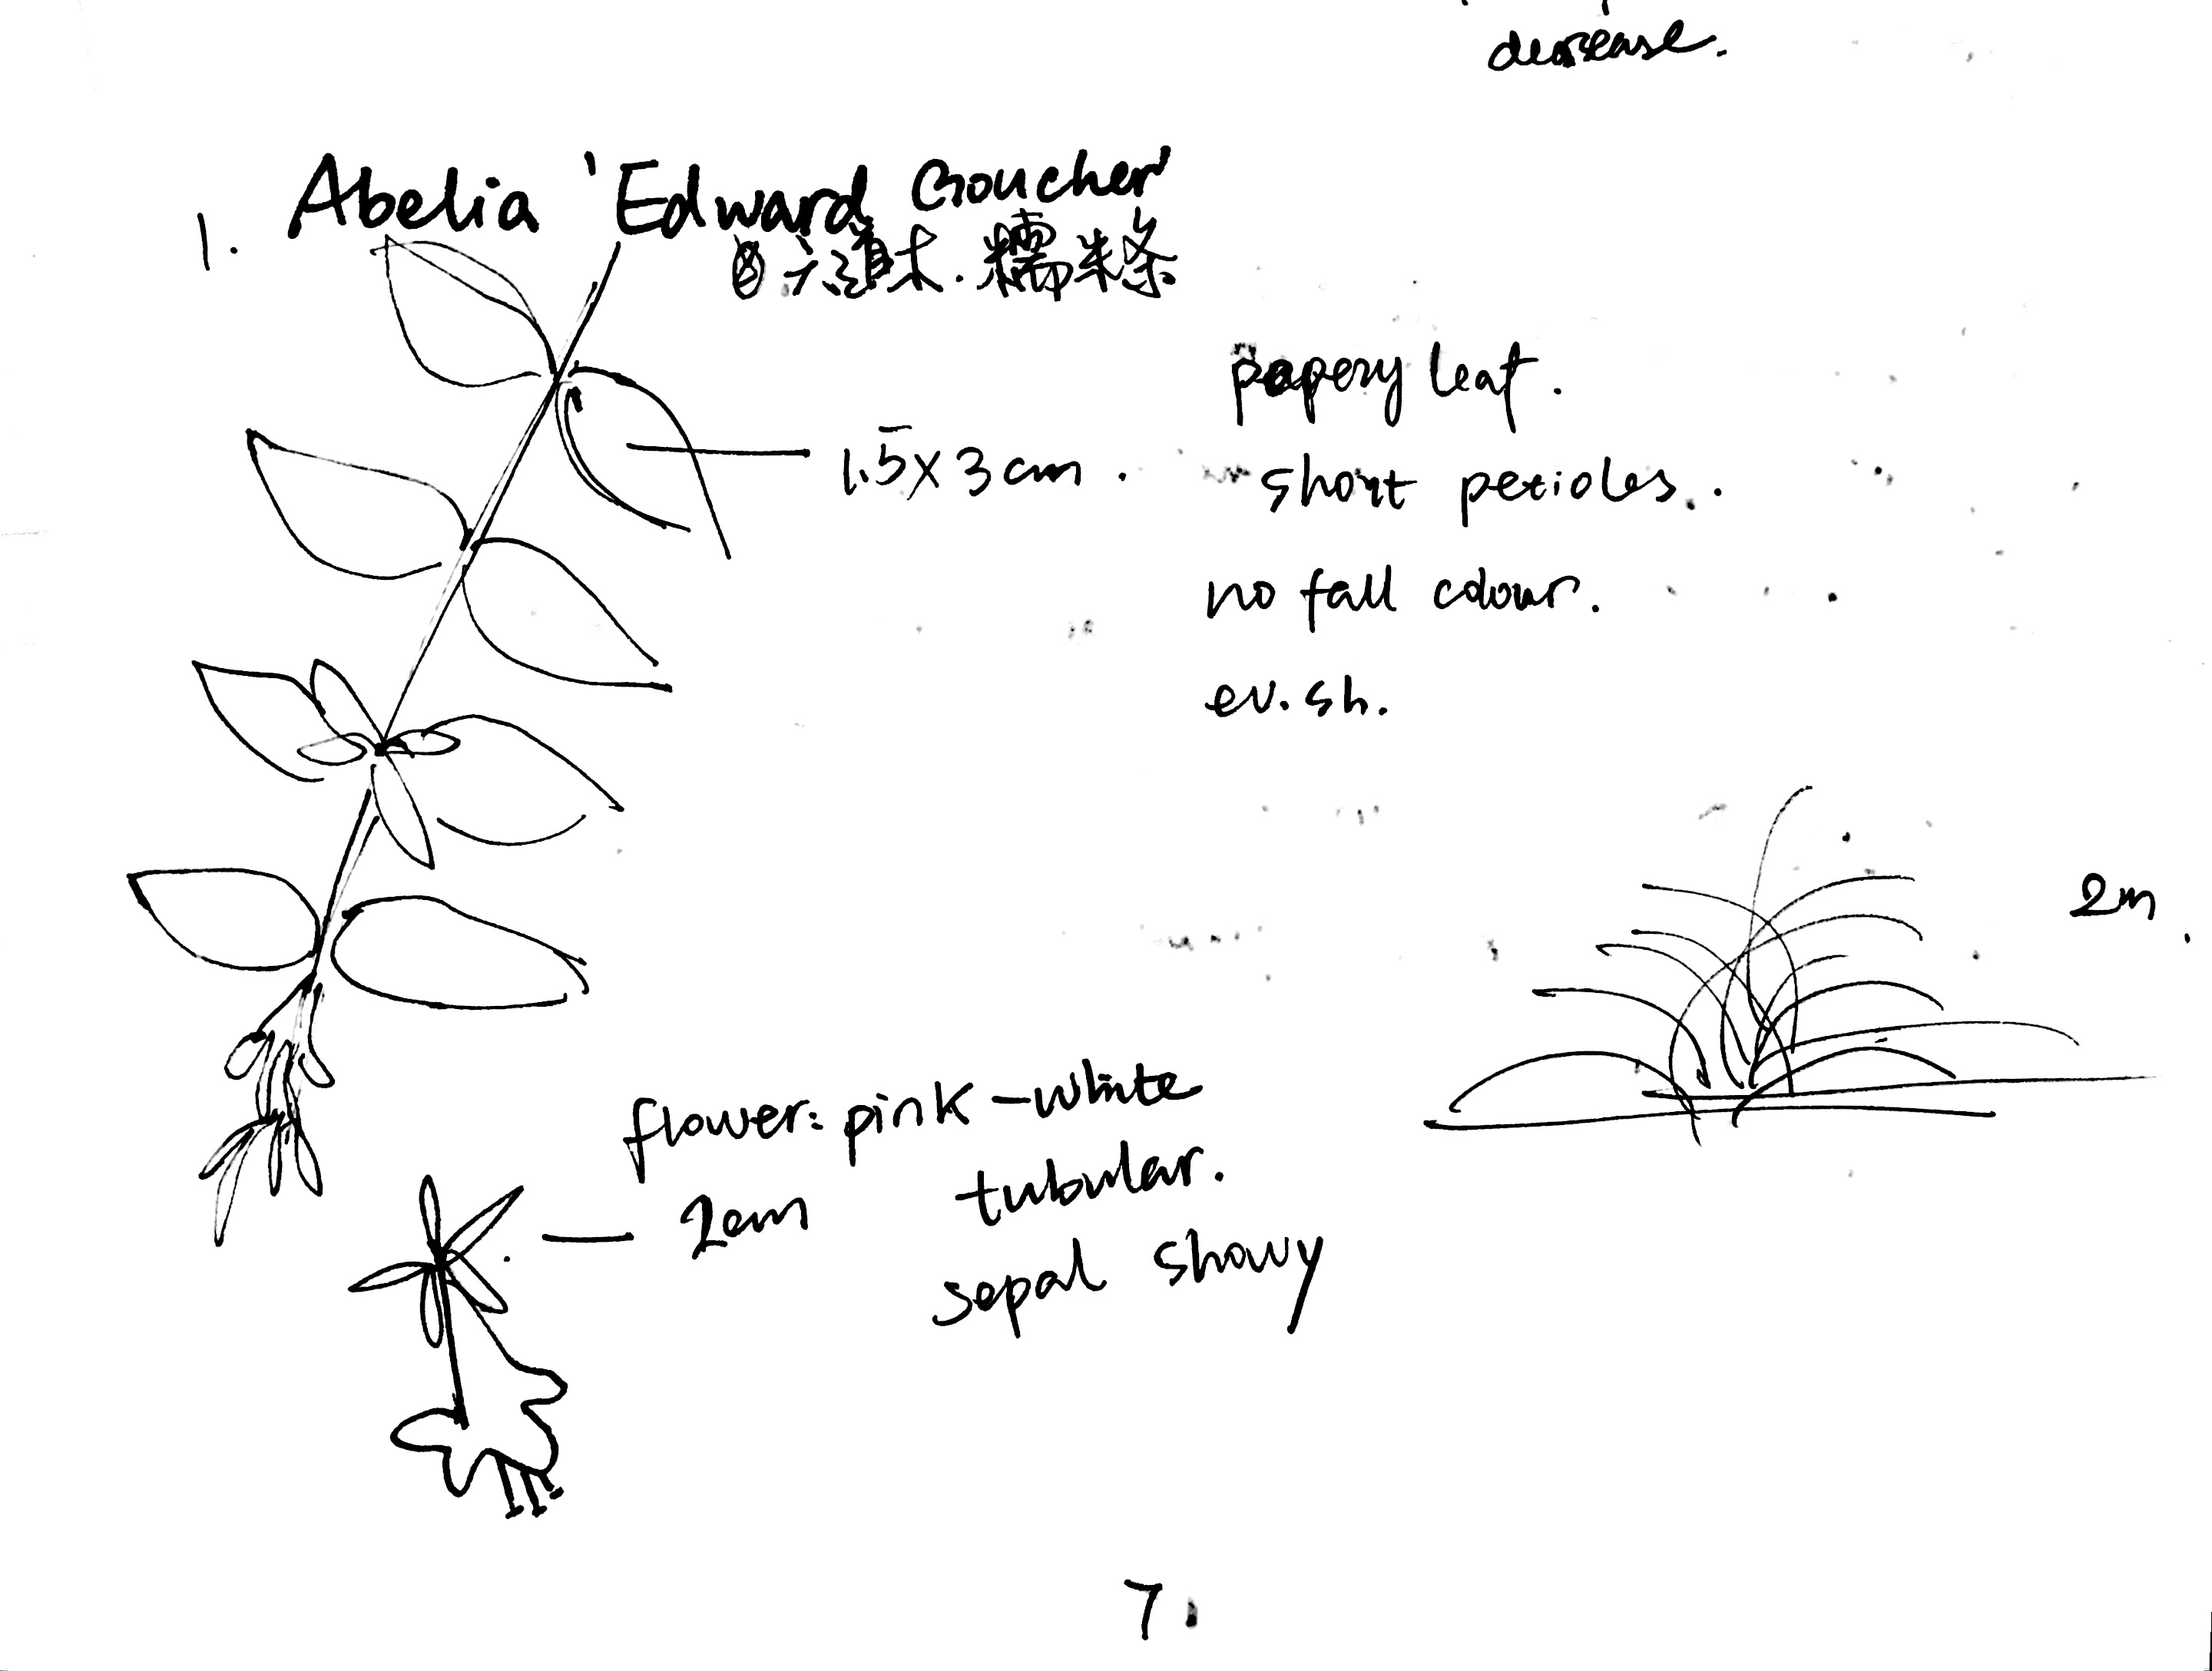 decrease.
1. Abelia 'Edward Goucher'
六道木.糯米条
papery leaf.
1.5x3cm.
short petioles.
no fall colour.
ev.sh.
2m
flower: pink-white
2cm tubular.
sepal showy
7